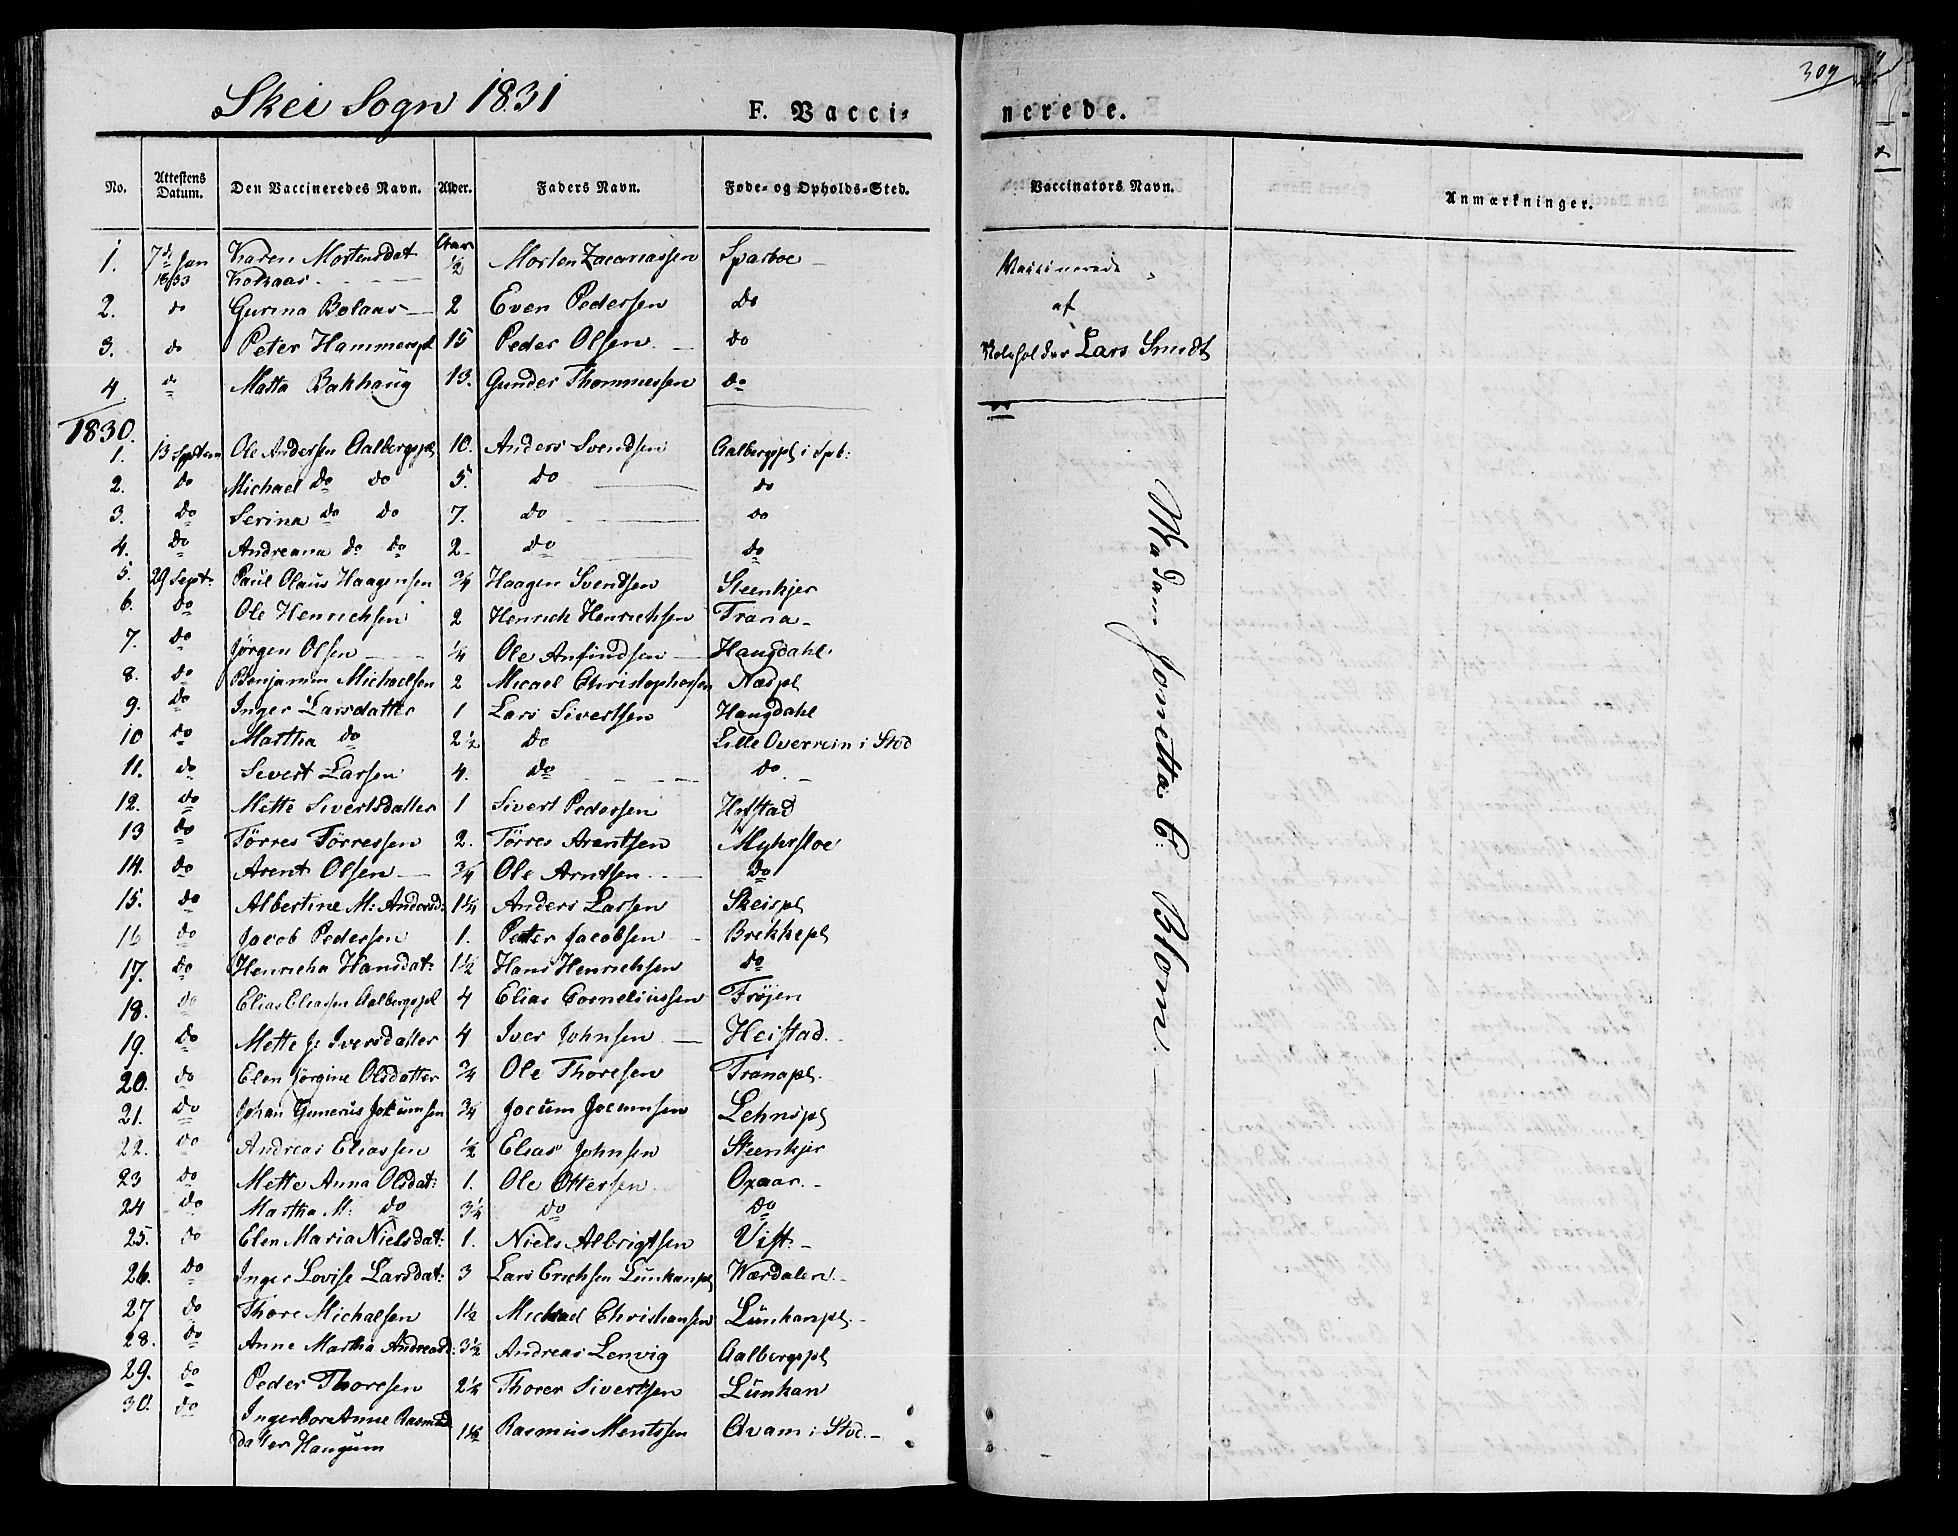 Skei Sogn 1831
F. Vacci-
nerede.
309
No. Attestens Datum. Den Vaccineredes Navn. Alder. Faders Navn. Føde- og Opholds-Sted. Vaccinators Navn. Anmærkninger.
Aar
1. 7d Jan 1833 Karen Mortensdat 1/2 Morten Zacariassen Sparboe
2. do Gurina Bolaas 2 Even Pedersen Do
3. do Peter Hammerspl 15 Peder Olsen do
4 do Matta Bakhaug 13. Gunder Thommessen do
Vaccinerede
af
Lars Smidt
1830.
1. 13 Septem Ole Andersen Aalbergspl 10. Anders Svendsen Aalbergspl i Spb:
2. do Michael do do 5. do do
3. do Serina do do 7. do do
4. do Andreana do do 2 do do
5. 29 Sept. Paul Olaus Haagensen 3/4 Haagen Svendsen Steenkjer
6. do Ole Henrichsen 2 Henrich Henrichsen Trana
7. do Jørgen Olsen 1/4 Ole Anfindsen Haugdahl
8. do Benjamin Michaelsen 2 Micael Christophersen Næspl
9. do Inger Larsdatter 1 Lars Sivertsen Haugdahl
10 do Martha do 2 1/2 do Lille Overrein i Stod
11. do Sivert Larsen 4. do do
12. do Mette Sivertsdatter 1 Sivert Pedersen Hofstad
13 do Tørres Tørressen 2. Tørres Arentsen Myhrsloe
14. do Arent Olsen 3/4 Ole Arntsen do
15. do Albertine M: Andersd: 1 1/4 Anders Larsen Skeispl
16 do Jacob Pedersen 1. Peter Jacobsen Brekkepl
17. do Henricha Hansdat: 1 1/2 Hans Henrichsen do
18. do Elias Eliassen Aalbergspl 4 Elias Corneliussen Frøjen
19. do Mette J: Iversdatter 4 Iver Johnsen Heistad
20. do Elen Jørgine Olsdatter 3/4 Ole Thoresen Tranapl.
21. do Johan Gunerus Jokumsen 3/4 Jocum Jocumsen Lehnspl
22. do Andreas Eliassen 1/2 Elias Johnsen Steenkjer
23 do Mette Anna Olsdat: 1. Ole Ottersen Oxaar.
24 do Martha M: do 3 1/4 do do
25. do Elen Maria Nielsdat: 1. Niels Albrigtsen Vist.
26. do Inger Lovise Larsdat: 3 Lars Erichsen Lunkanpl Wærdalen
27 do Thore Michalsen 1 1/2 Michael Christiansen Lunkanpl.
28. do Anne Martha Andreasd: 3 1/2 Andreas Lenvig Aalbergspl
29. do Peder Thoresen 2 1/4 Thorer Sivertsen Lunkan
30. do Ingerbor Anne Rasmusdatter Haugum 1 1/2 Rasmus Mentssen Qvam i Stod.
Madam Jonetta C: Blom